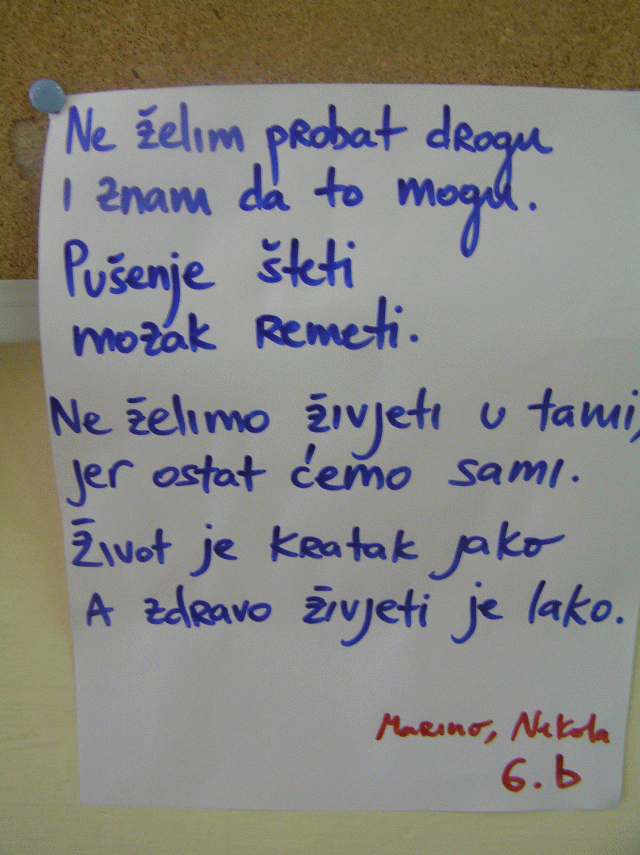 Ne želim probat drogu
I znam da to mogu.
Pušenje šteti
mozak remeti.
Ne želimo živjeti u tami,
jer ostat ćemo sami.
Život je kratak jako
A zdravo živjeti je lako.
Marino, Nikola
6.b